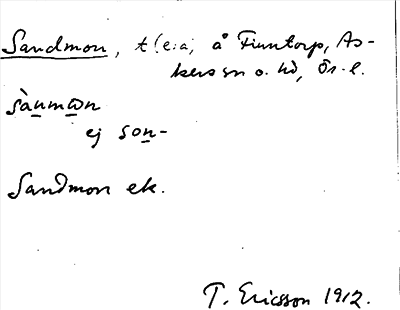 Sandmon, t(e:a, å Finntorp, As-
kers sn o. hd, Ör. l.
sànmωn
ej son-
Sandmon ek.
T. Ericsson 1912.